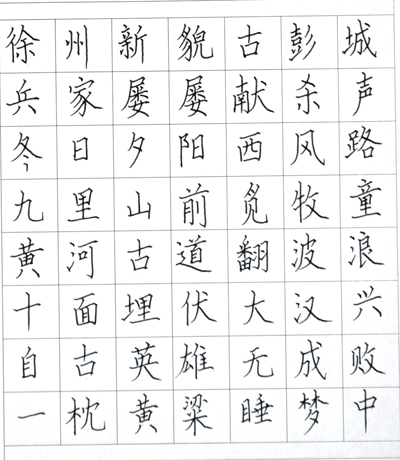 徐州新貌古彭城
兵家屡屡献杀声
冬日夕阳西风路
九里山前觅牧童
黄河古道翻波浪
十面埋伏大汉兴
自古英雄无成败
一枕黄粱睡梦中